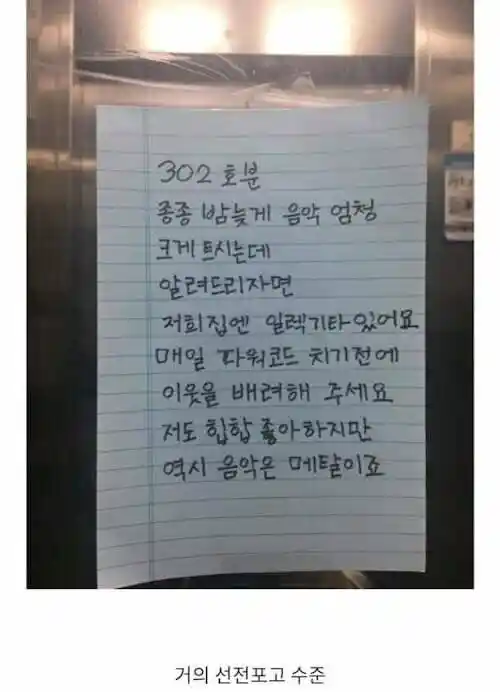 302 호분
종종 밤늦게 음악 엄청
크게 트시는데
알려드리자면
저희집엔 일렉기타있어요
매일 파워코드 치기전에
이웃을 배려해 주세요
저도 힙합 좋아하지만
역시 음악은 메탈이죠
거의 선전포고 수준